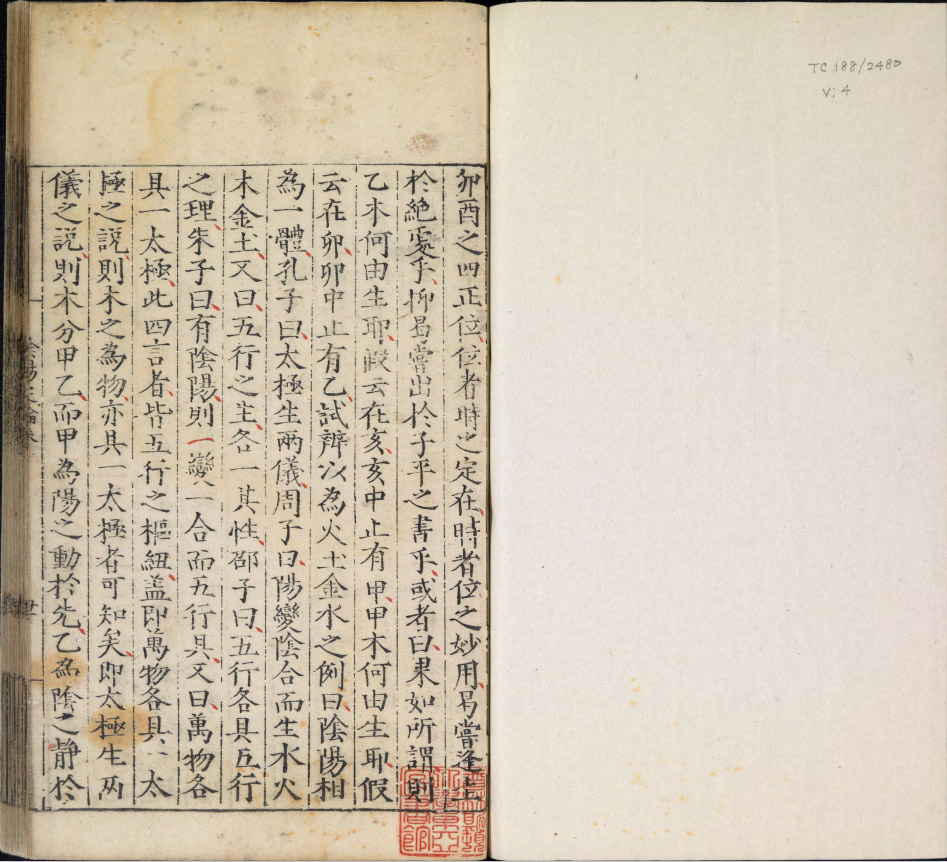 卯酉之四正位位者時之定在時者位之妙用曷嘗逢生
於絶處乎抑曷嘗出於子平之書乎或者曰果如所謂則
乙木何由生耶假云在亥亥中止有甲甲木何由生耶假
云在卯卯中止有乙試辨以為火土金水之例曰陰陽相
為一體孔子曰太極生兩儀周子曰陽變陰合而生水火
木金土又曰五行之生各一其性邵子曰五行各具五行
之理朱子曰有陰陽則一變一合而五行具又曰萬物各
具一太極此四言者皆五行之樞紐盖即萬物各具一太
極之説則木之為物亦具一太極者可知矣即太極生兩
儀之説則木分甲乙而甲為陽之動於先乙為陰之静於
陰陽 論卷
廿
TC 188/2480
V: 4